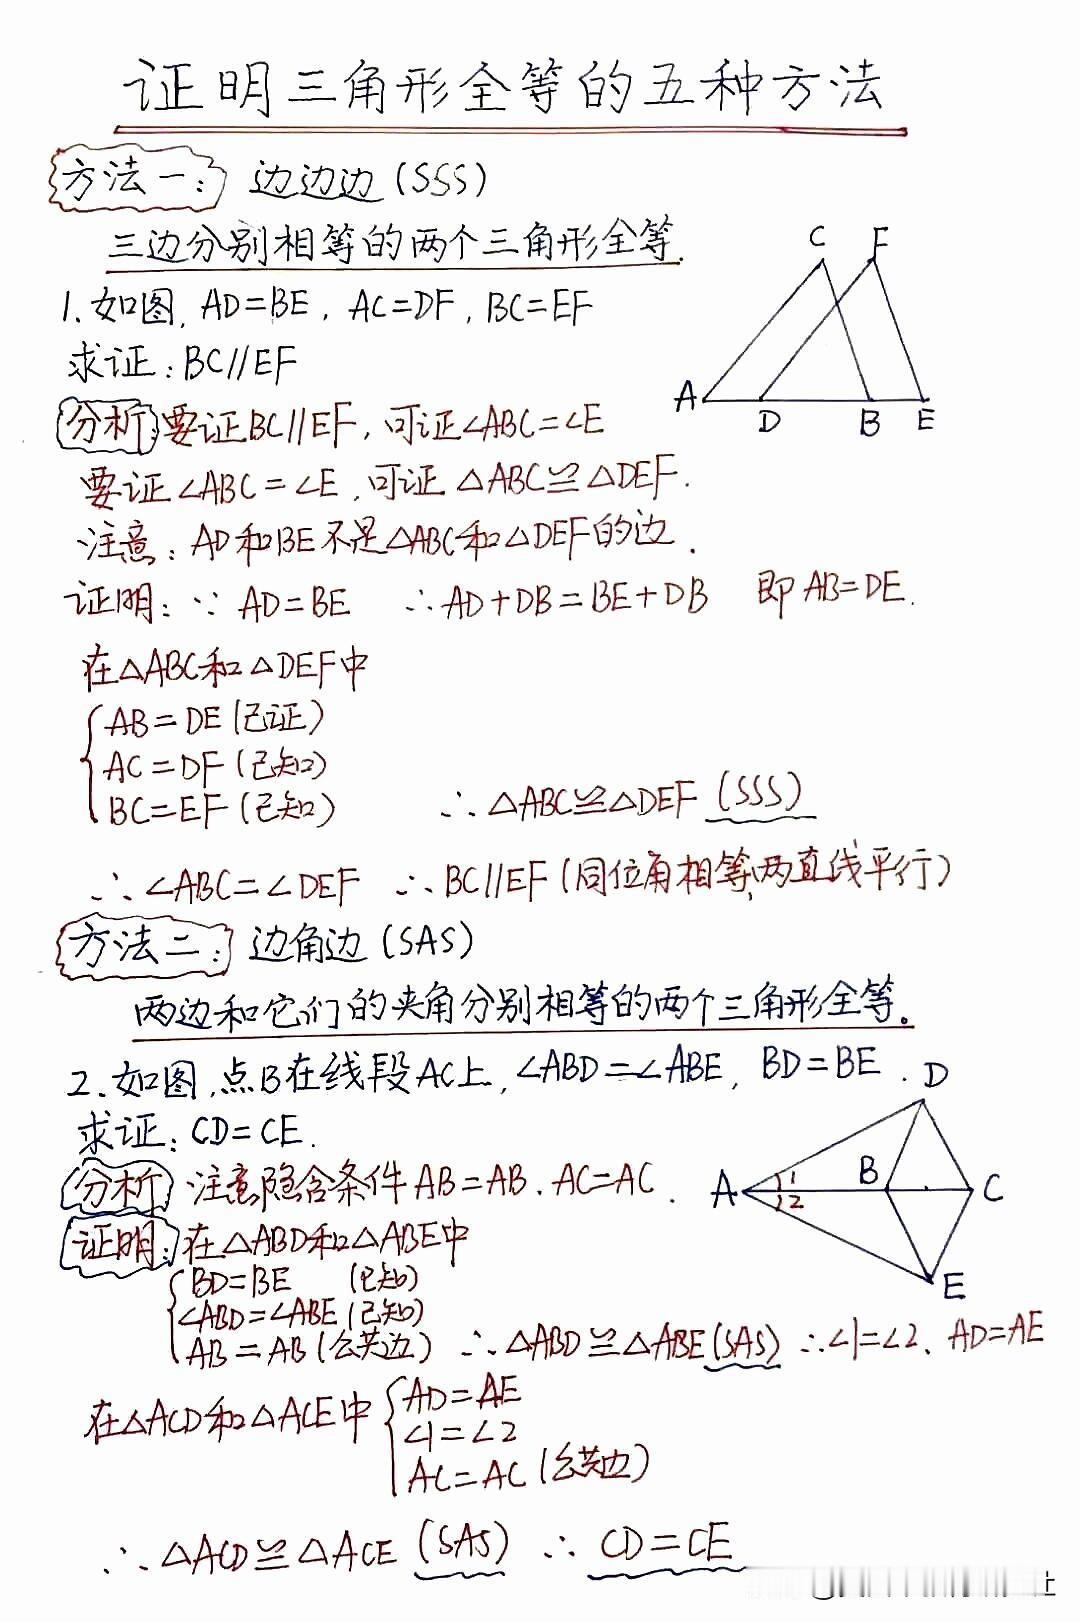 证明三角形全等的五种方法
方法一: 边边边(SSS)
三边分别相等的两个三角形全等.
1.如图, AD=BE, AC=DF, BC=EF
求证:BC//EF
C F
A D B E
分析:要证BC//EF,可证∠ABC=∠E
要证∠ABC=∠E,可证△ABC≌△DEF.
注意:AD和BE不是△ABC和△DEF的边.
证明:∵ AD=BE ∴AD+DB=BE+DB 即AB=DE.
在△ABC和△DEF中
AB=DE(已证)
AC=DF(已知)
BC=EF(已知) ∴△ABC≌△DEF(SSS)
∴∠ABC=∠DEF ∴BC//EF(同位角相等,两直线平行)
方法二: 边角边(SAS)
两边和它们的夹角分别相等的两个三角形全等。
2.如图,点B在线段AC上,∠ABD=∠ABE, BD=BE.
求证:CD=CE.
D
A 1 2 B C
E
分析 注意隐含条件AB=AB.AC=AC.
证明:在△ABD和△ABE中
BD=BE (已知)
∠ABD=∠ABE(已知)
AB=AB(公共边) ∴△ABD≌△ABE(SAS) ∴∠1=∠2、AD=AE
在△ACD和△ACE中 AD=AE
∠1=∠2
AC=AC(公共边)
∴△ACD≌△ACE(SAS) ∴ CD=CE